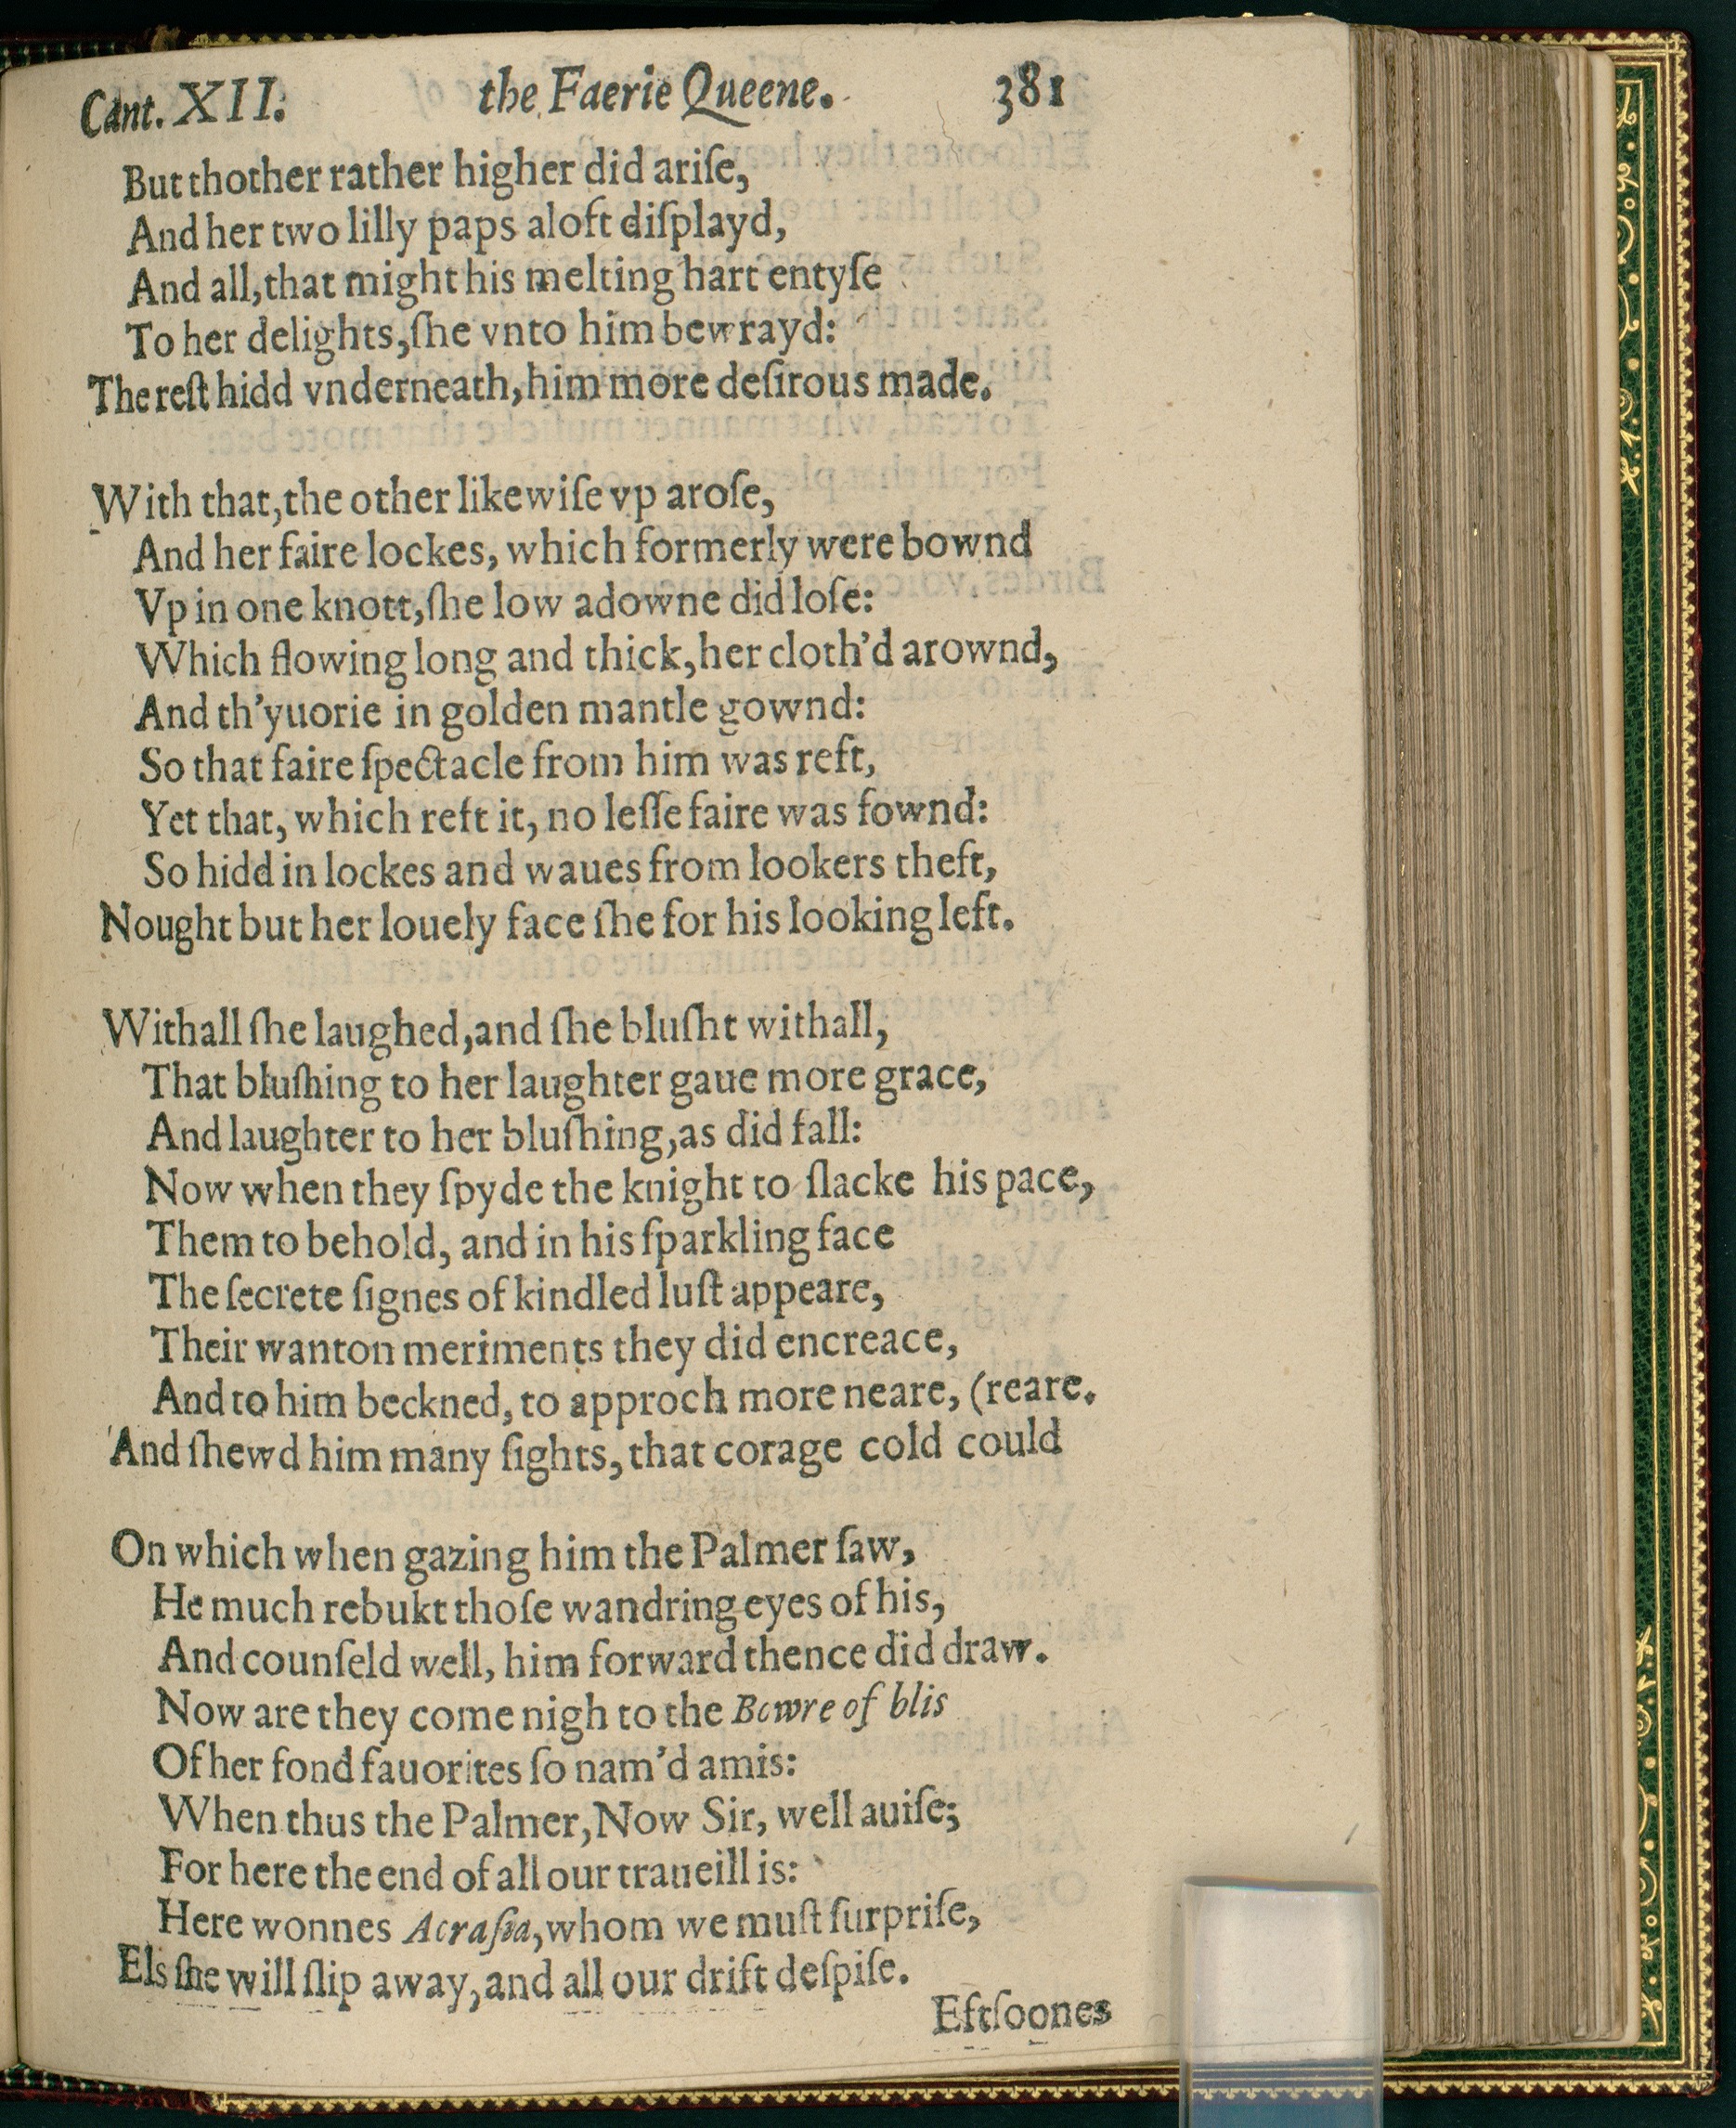 Cant. XII. the Faerie Queene. 381
But thother rather higher did ariſe,
And her two lilly paps aloft diſplayd,
And all, that might his melting hart entyſe
To her delights, ſhe vnto him bewrayd:
The reſt hidd vnderneath, him more deſirous made.
With that, the other likewiſe vp aroſe,
And her faire lockes, which formerly were bownd
Vp in one knott, ſhe low adowne did loſe:
Which flowing long and thick, her cloth'd arownd,
And th'yuorie in golden mantle gownd:
So that faire ſpectacle from him was reft,
Yet that, which reft it, no leſſe faire was fownd:
So hidd in lockes and waues from lookers theft,
Nought but her louely face ſhe for his looking left.
Withall ſhe laughed, and ſhe bluſht withall,
That bluſhing to her laughter gaue more grace,
And laughter to her bluſhing, as did fall:
Now when they ſpyde the knight to ſlacke his pace,
Them to behold, and in his ſparkling face
The ſecrete ſignes of kindled luſt appeare,
Their wanton meriments they did encreace,
And to him beckned, to approch more neare, (reare.
And ſhewd him many ſights, that corage cold could
On which when gazing him the Palmer ſaw,
He much rebukt thoſe wandring eyes of his,
And counſeld well, him forward thence did draw.
Now are they come nigh to the Bowre of blis
Of her fond fauorites ſo nam'd amis:
When thus the Palmer, Now Sir, well auiſe;
For here the end of all our traueill is:
Here wonnes Acraſia, whom we muſt ſurpriſe,
Els ſhe will ſlip away, and all our drift deſpiſe.
Eftſoones